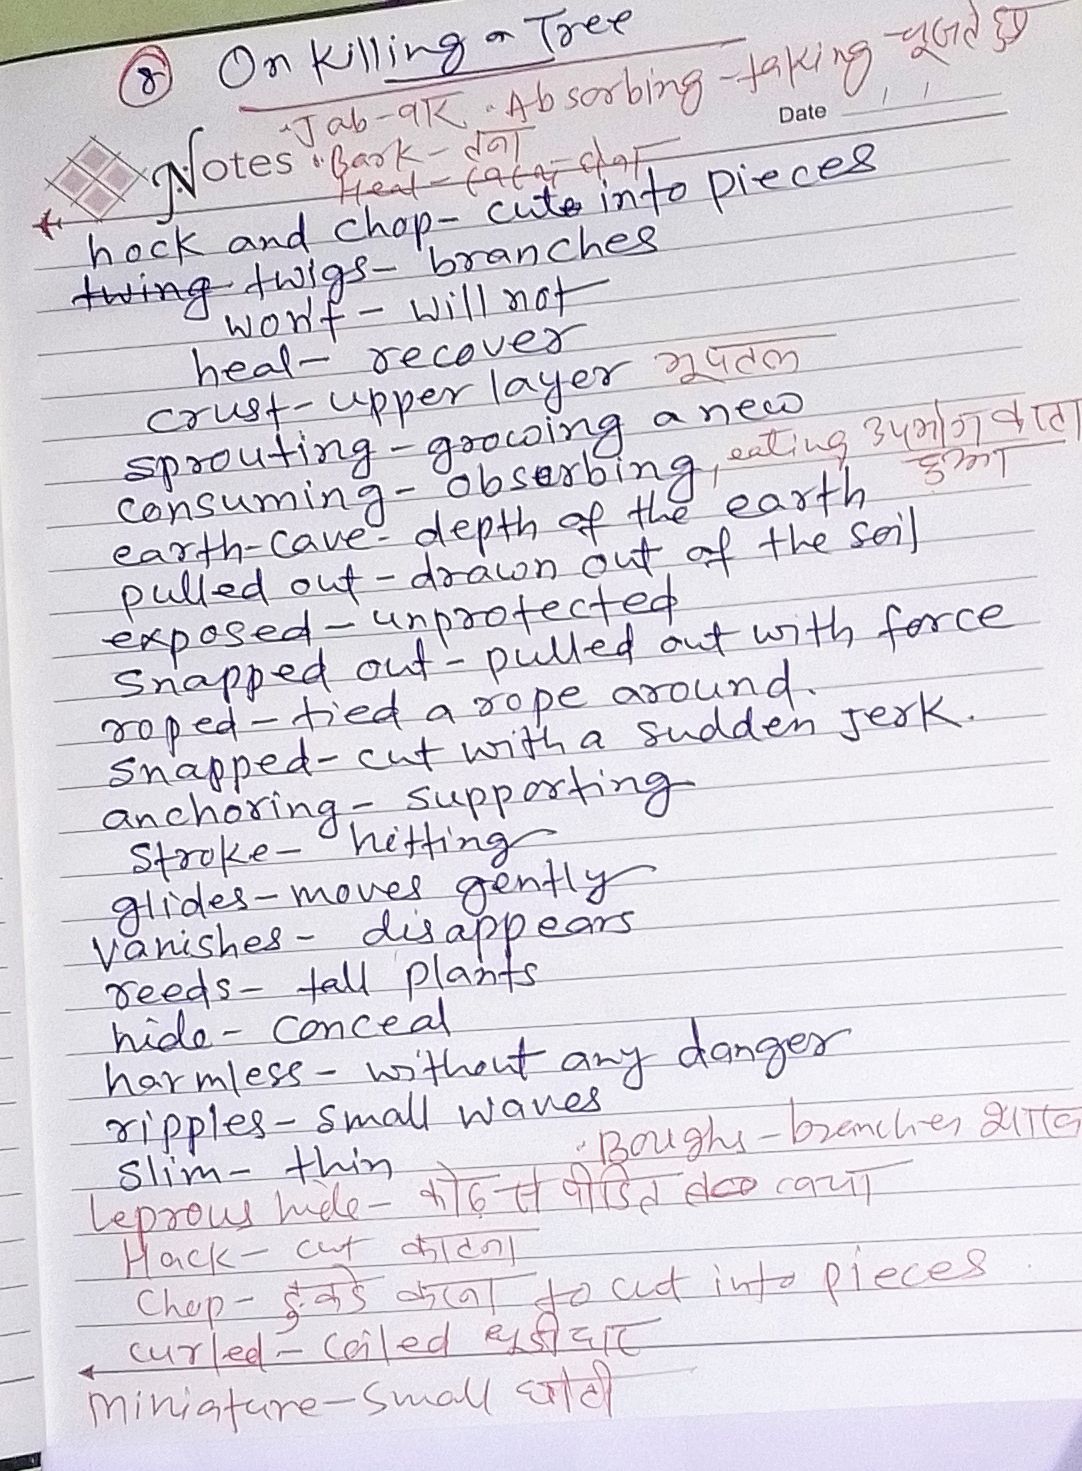 8 On Killing a Tree
Jab-वार Absorbing-taking चूसते हुए
Date / /
Notes Bark-तना
hock and chop- cuts into pieces
twigs- branches
won't- will not
heal- recover
crust- upper layer भूपतल
sprouting- growing a new
consuming- obsorbing, eating उपभोग करता हुआ
earth-cave- depth of the earth
pulled out- drawn out of the soil
exposed- unprotected
snapped out- pulled out with force
roped- tied a rope around.
snapped- cut with a sudden jerk.
anchoring- supporting
stroke- hitting
glides- moves gently
vanishes- disappears
reeds- tall plants
hide- conceal
harmless- without any danger
ripples- small waves
Boughs-branches
slim- thin
Leprous hide- कोढ़ से पीडित त्वचा
Hack- cut काटना
Chop- टुकडे करना to cut into pieces
curled- coiled
Miniature-Small छोटी